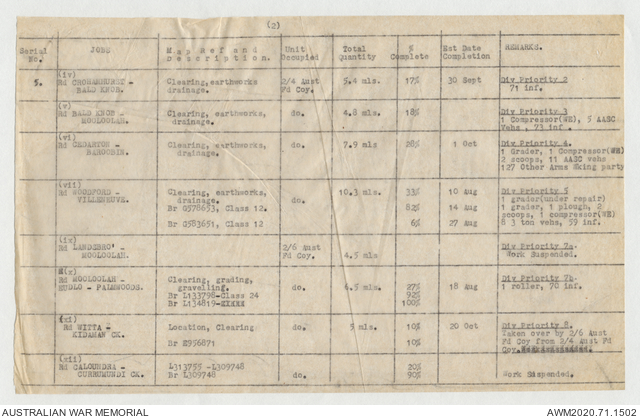 (2)
Serial No. JOBS Map Ref and Description. Unit Occupied Total Quantity % Complete Est Date Completion REMARKS.
5. (iv)
Rd CROHAMHURST - BALD KNOB. Clearing, earthworks drainage. 2/4 Aust Fd Coy. 5.4 mls. 17% 30 Sept Div Priority 2
71 inf.
(v)
Rd BALD KNOB - MOOLOOLAH. Clearing, earthworks, drainage. do. 4.8 mls. 18% Div Priority 3
1 Compressor(WE), 5 AASC
Vehs , 73 inf.
(vi)
Rd CEDARTON - Clearing, earthworks, drainage. do. 7.9 mls 28% 1 Oct Div Priority 4.
1 Grader, 1 Compressor(WE)
2 scoops, 11 AASC vehs
127 Other Arms Wking party
(vii)
Rd WOODFORD - VILLENEUVE. Clearing, earthworks, drainage. do. 10.3 mls. 33% 10 Aug Div Priority 5
Br G578653, Class 12. 82% 14 Aug
Br G583651, Class 12 6% 27 Aug
1 grader(under repair)
1 grader, 1 plough, 2
scoops, 1 compressor(WE)
8 3 ton vehs, 59 inf.
(ix)
Rd LANDSBRO' - MOOLOOLAH. 2/6 Aust Fd Coy. 4.5 mls Div Priority 7a.
Work Suspended.
(x)
Rd MOOLOOLAH - EUDLO - PALMWOODS. Clearing, grading, gravelling. do. 6.5 mls. 27% 18 Aug Div Priority 7b.
1 roller, 70 inf.
Br L133798-Class 24 92%
Br L134819- 100%
(xi)
Rd WITTA - KIDAMAN CK. Location, Clearing do. 5 mls. 10% 20 Oct Div Priority 8.
Br E956871 10%
Taken over by 2/6 Aust
Fd Coy from 2/4 Aust Fd
Coy.
(xii)
Rd CALOUNDRA - CURRUMUNDI CK. L313755 - L309748 20%
Br L309748 do. 90% Work Suspended.
AUSTRALIAN WAR MEMORIAL
AWM2020.71.1502